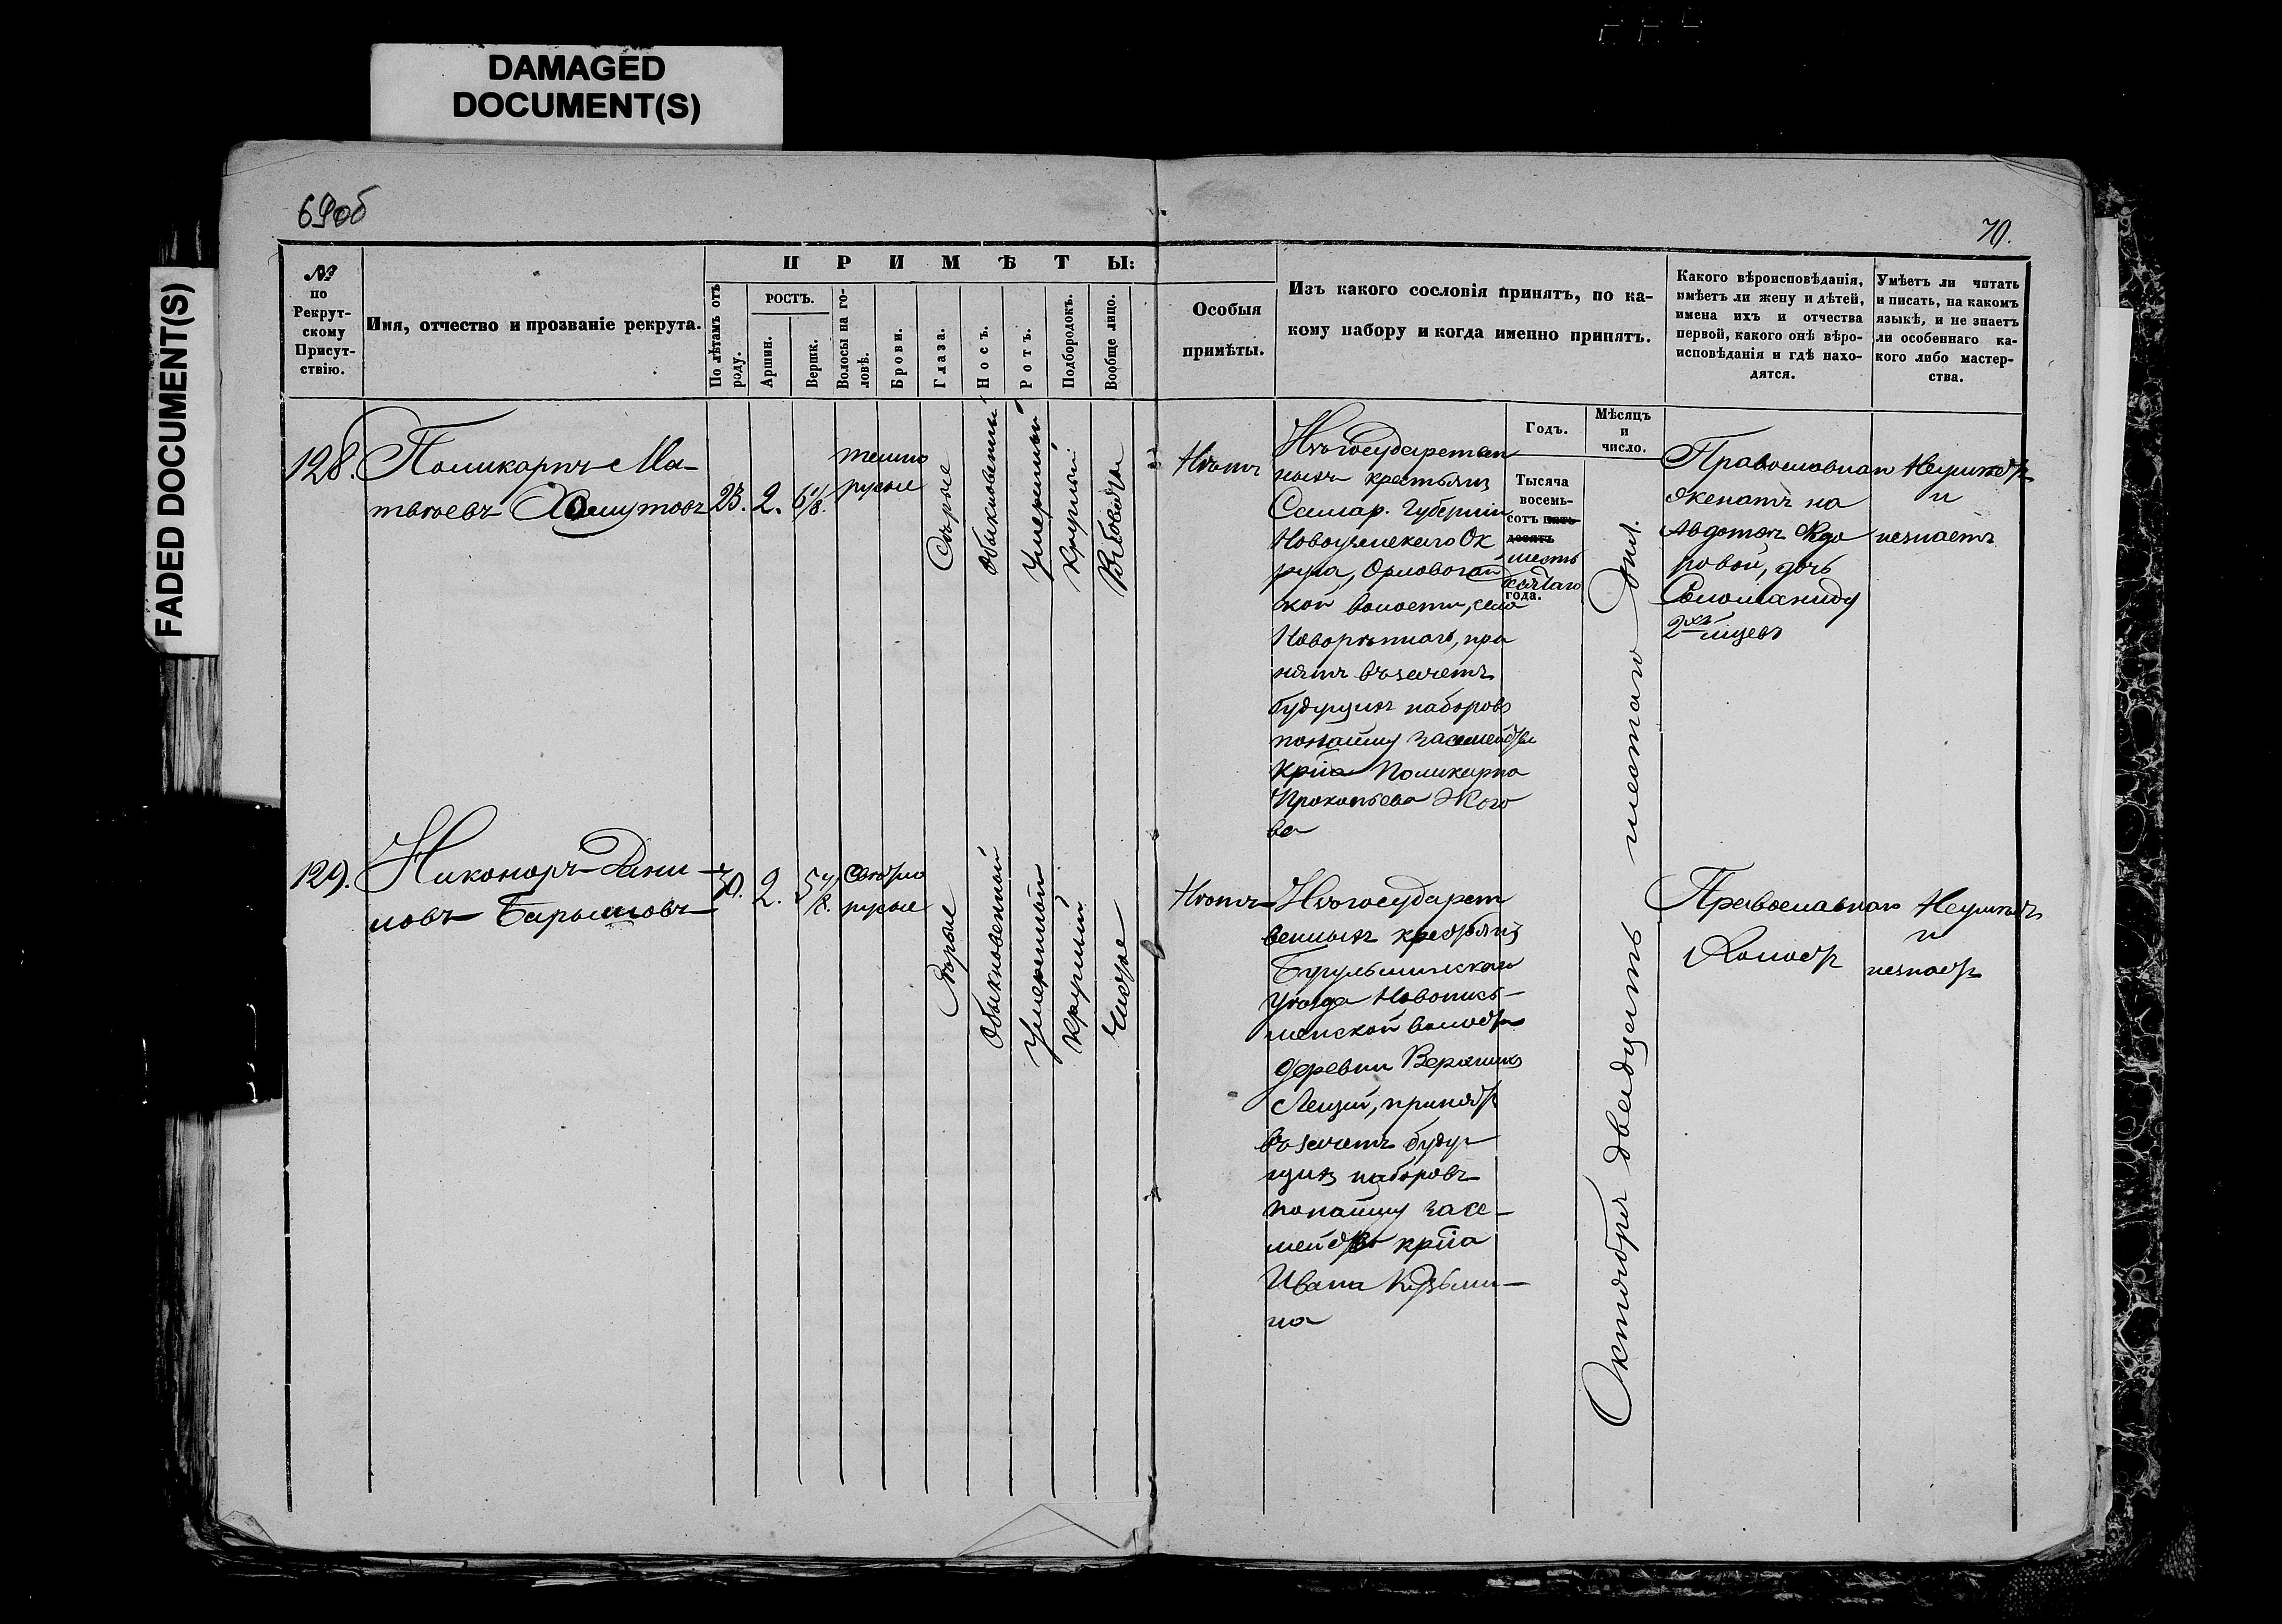 DAMAGED
DOCUMENT(S)
FADED DOCUMENT(S)
69об
70.
№
по
Рекрут-
скому
Присут-
ствію.
Имя, отчество и прозваніе рекрута.
ПРИМѢТЫ:
По лѣтамъ отъ
роду.
РОСТЪ.
Аршин.
Вершк.
Волосы на го-
ловѣ.
Брови.
Глаза.
Носъ.
Ротъ.
Подбородокъ.
Вообще лицо.
Особыя
примѣты.
Изъ какого сословія принятъ, по ка-
кому набору и когда именно принятъ.
Годъ.
Мѣсяцъ
и
число.
Какого вѣроисповѣданія,
имѣетъ ли жену и дѣтей,
имена ихъ и отчества
первой, какого онѣ вѣро-
исповѣданія и гдѣ нахо-
дятся.
Умѣетъ ли читать
и писать, на какомъ
языкѣ, и не знаетъ
ли особеннаго ка-
кого либо мастер-
ства.
128.
Поликарпъ Ма-
твѣевъ Хомутовъ
23.
2.
6 1/8.
темно
русые
Сѣрые
Обыкновенный
Умѣренный
Круглый
Нѣтъ
Изъ государствен
ныхъ крестьянъ
Самар. Губерніи
Новоузенскаго Ок
руга, Орловогай
ской волости, села
Новорѣпнаго, при
нятъ въ зачетъ
будущихъ наборовъ
по найму за семейство
кр-на Поликарпа
Прокопьева
Тысяча
восемь-
сотъ пять-
десятъ
шесть
десятаго
года.
Октября двадцать шестаго дня.
Православнаго
женатъ на
Авдотьѣ
ровой, дочь
Соломаниду
2хъ мѣсяцевъ
Неумѣетъ
и
незнаетъ
129.
Никоноръ Дани-
ловъ Барышовъ
30.
2.
5 7/8.
Свѣтло
русые
Сѣрые
Обыкновенный
Умѣренный
Круглый
Чистое
Нѣтъ
Изъ государст
венныхъ крестьянъ
Бугульминскаго
Уѣзда Новопись-
мянской волости
деревни
принятъ
въ зачетъ буду-
щихъ наборовъ
по найму за се-
мейство кр-на
Ивана Кузьми-
на
Православнаго
Холостъ
Неумѣетъ
и
незнаетъ